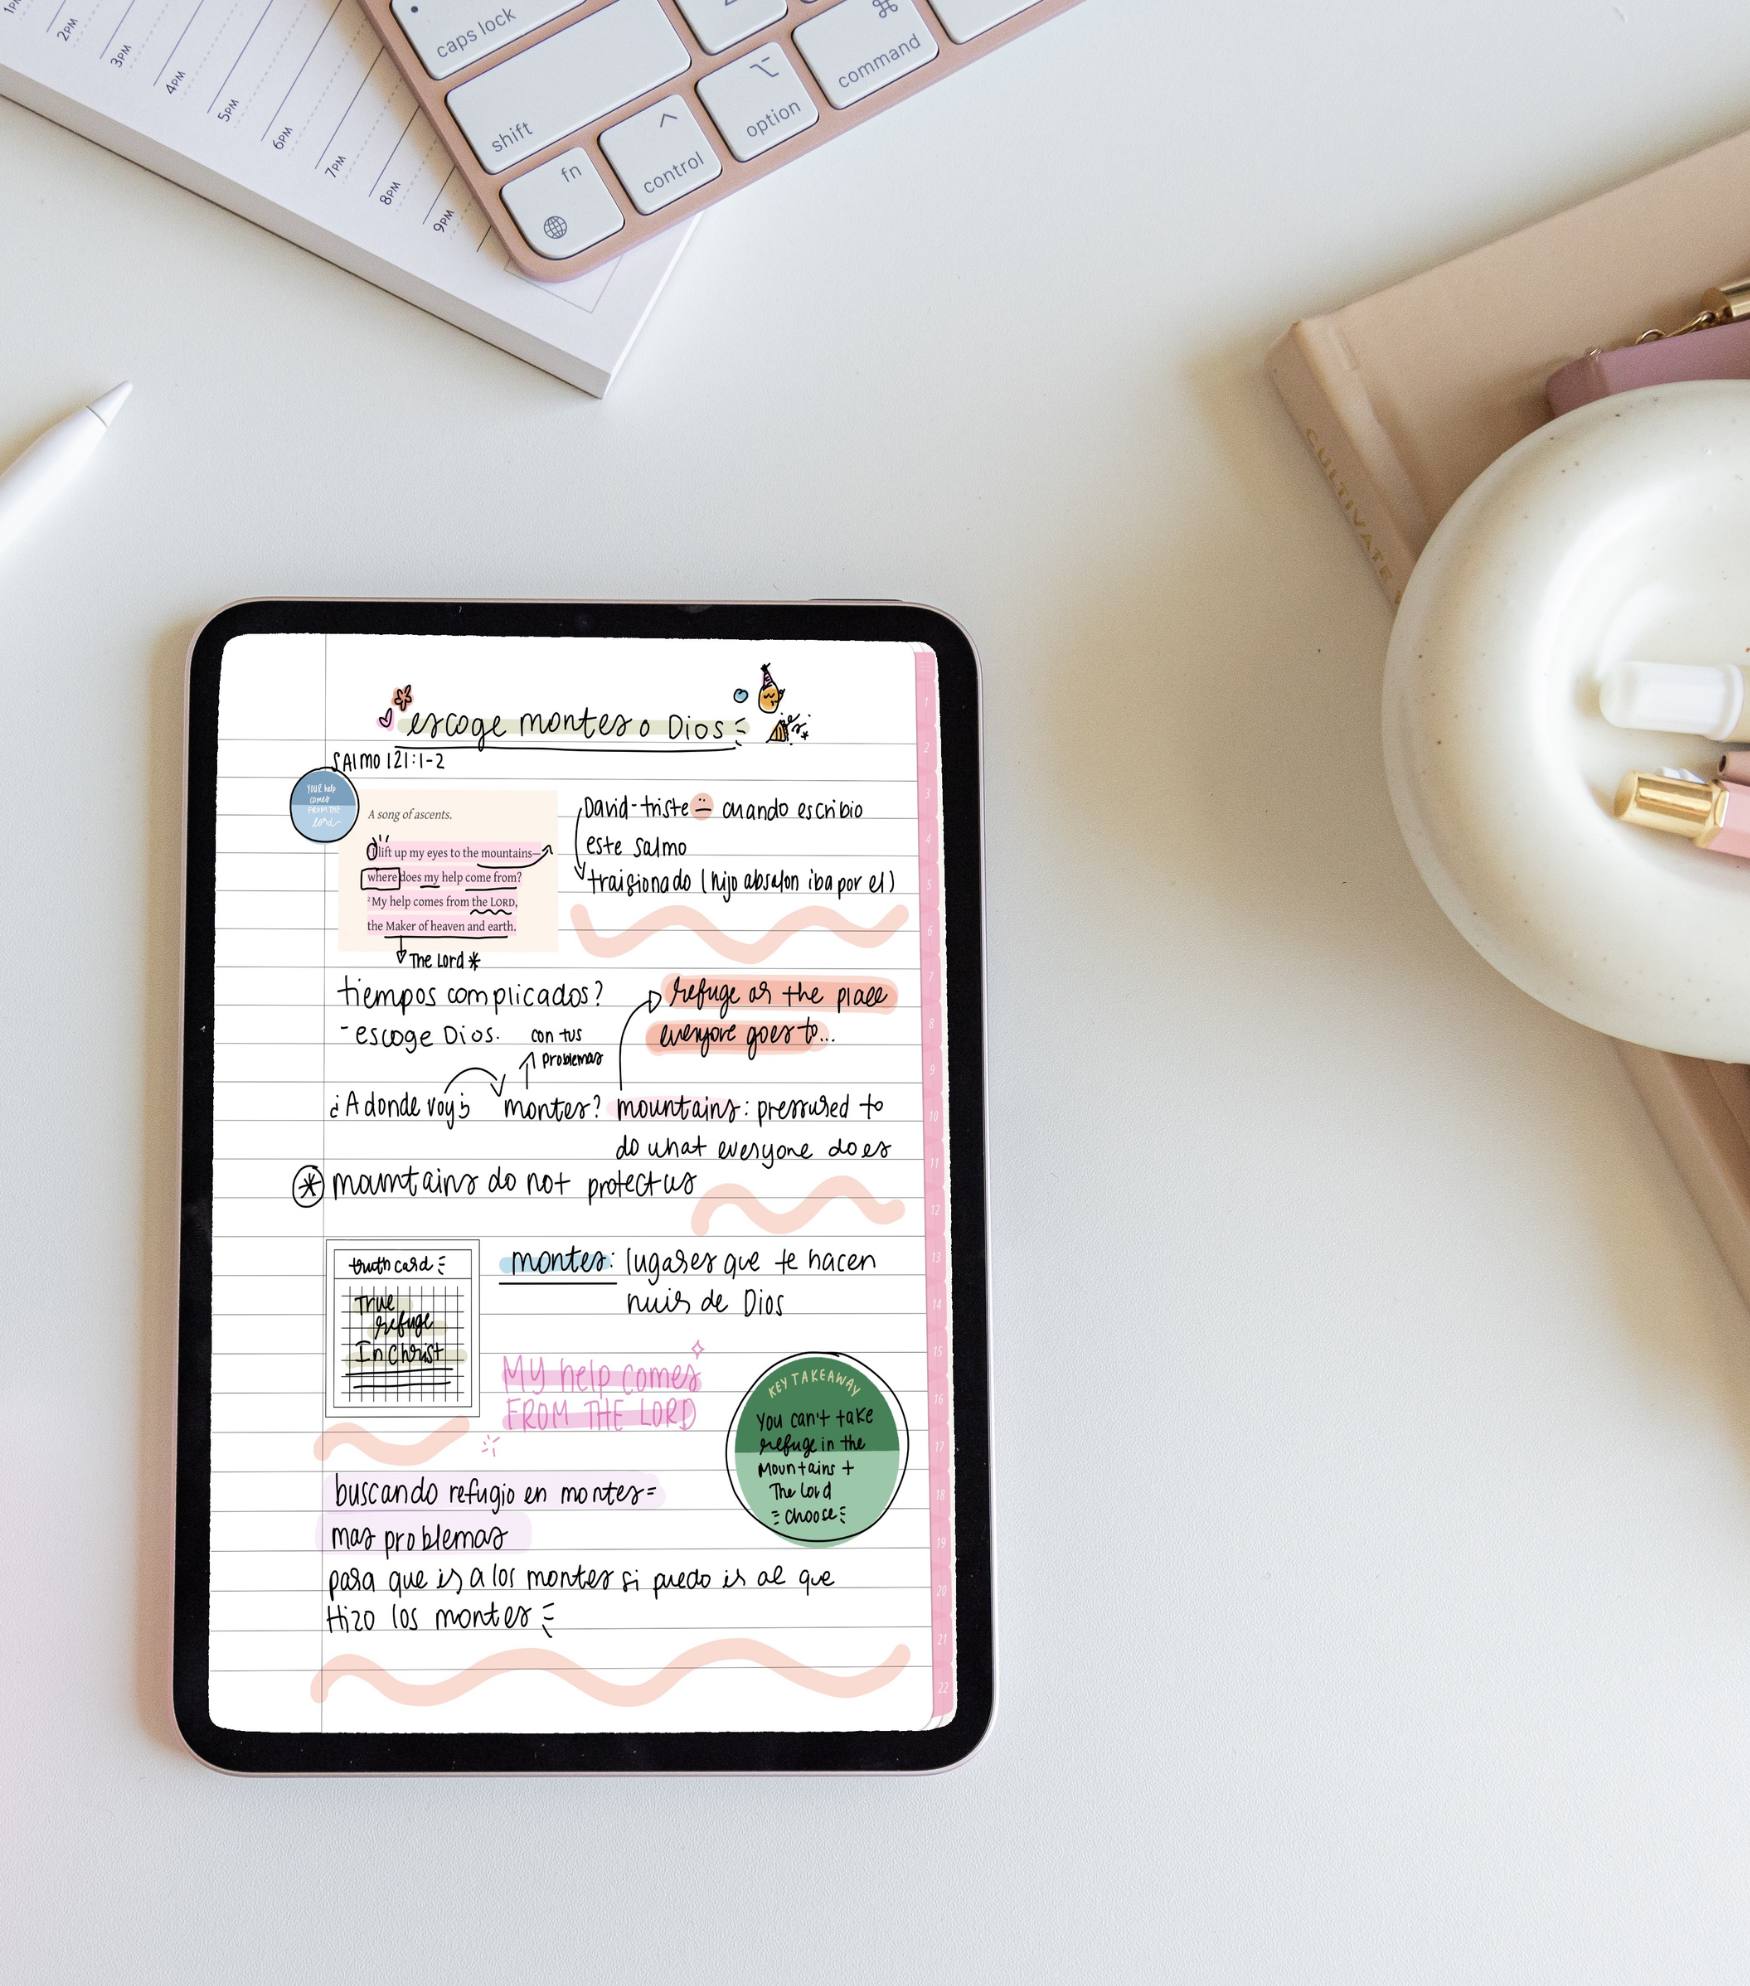 1PM
2PM
3PM
4PM
5PM
6PM
7PM
8PM
9PM
caps lock
shift
fn
control
option
command
CULTIVATE
escoge montes o Dios
SAlmo 121:1-2
YOUR help
comes
FROM THE
lord
A song of ascents.
I lift up my eyes to the mountains—
where does my help come from?
² My help comes from the LORD,
the Maker of heaven and earth.
The Lord *
David-triste cuando escribio
este salmo
traisionado (hijo absalon iba por el)
tiempos complicados?
-escoge Dios.
con tus
problemas
refuge as the place
everyone goes to...
¿A donde voy?
montes?
mountains: pressured to
do what everyone does
* mountains do not protect us
truth card
True
refuge
In Christ
montes: lugares que te hacen
nuis de Dios
MY help comes
FROM THE LORD
KEY TAKEAWAY
You can't take
refuge in the
Mountains +
The Lord
= choose =
buscando refugio en montes=
mas problemas
para que ir a los montes si puedo ir al que
Hizo los montes
1
2
3
4
5
6
7
8
9
10
11
12
13
14
15
16
17
18
19
20
21
22